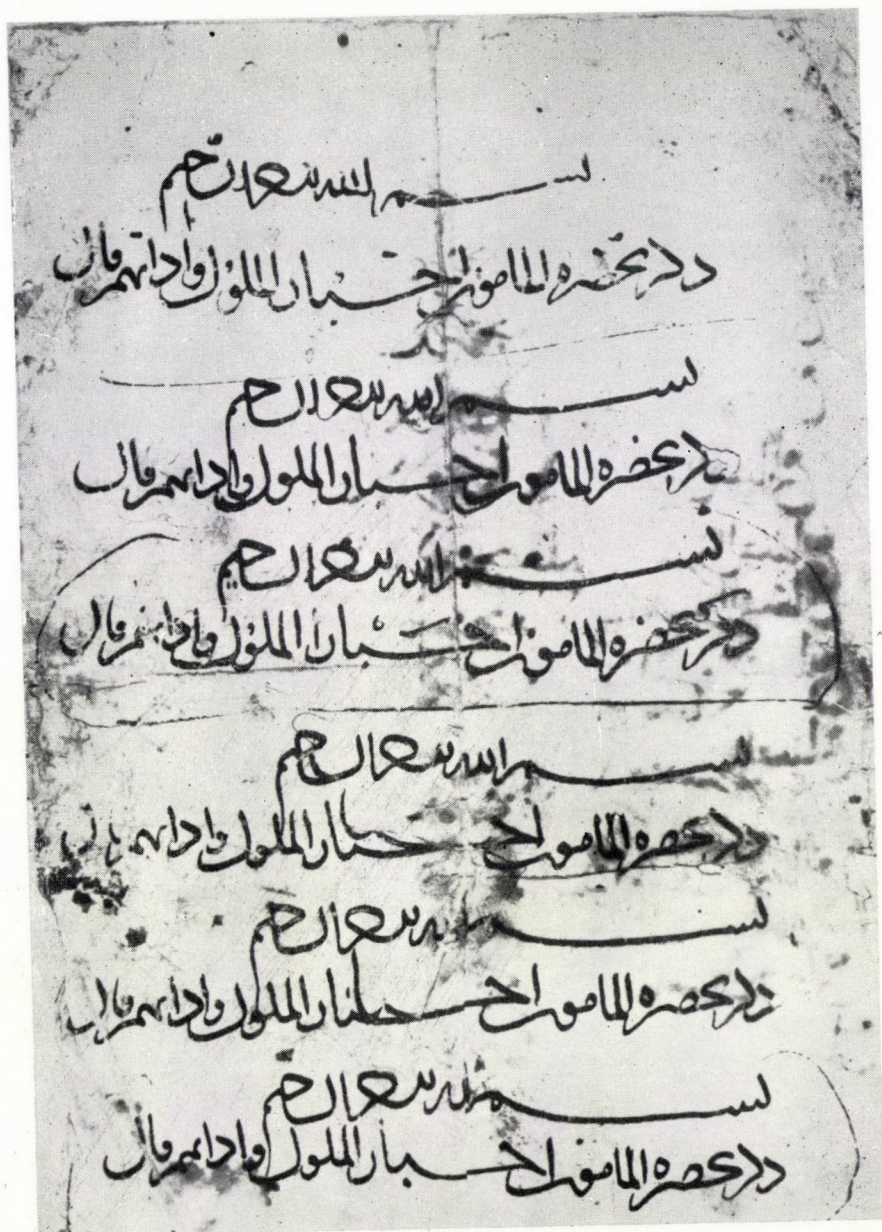 بسم الله الرحمن الرحيم
ذكر بحضره المامون اخبار الملوك وادابهم فقال
بسم الله الرحمن الرحيم
ذكر بحضره المامون اخبار الملوك وادابهم فقال
بسم الله الرحمن الرحيم
ذكر بحضره المامون اخبار الملوك وادابهم فقال
بسم الله الرحمن الرحيم
ذكر بحضره المامون اخبار الملوك وادابهم فقال
بسم الله الرحمن الرحيم
ذكر بحضره المامون اخبار الملوك وادابهم فقال
بسم الله الرحمن الرحيم
ذكر بحضره المامون اخبار الملوك وادابهم فقال